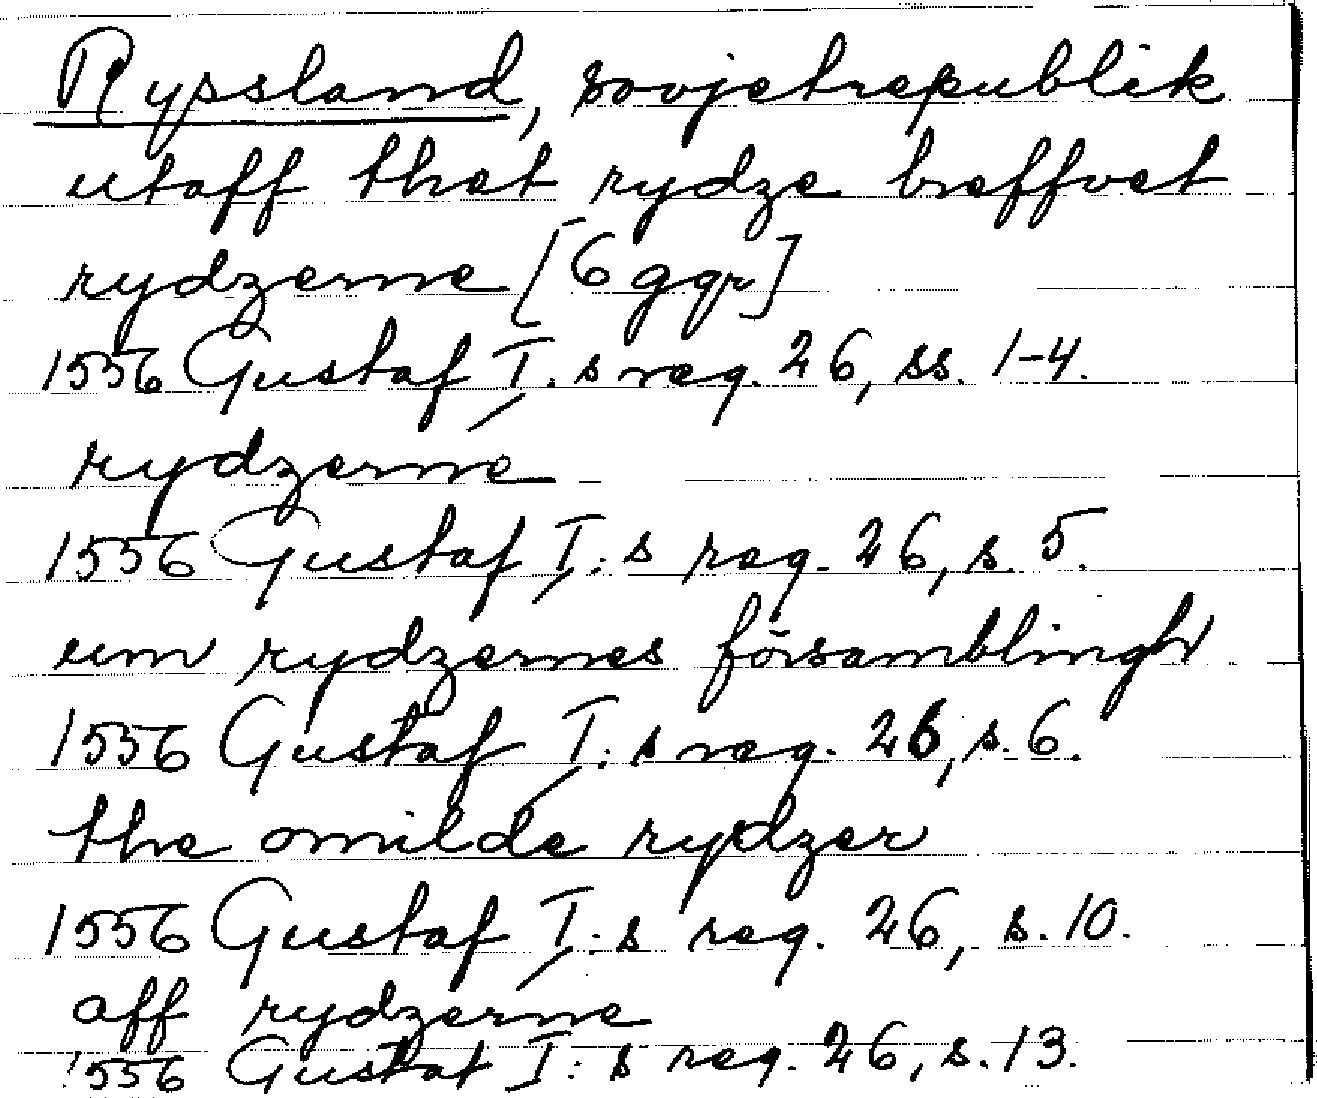 Ryssland, sovjetrepublik
utaff thet rydze breffvet
rydzerne [6 ggr]
1556 Gustaf I. s reg. 26, ss. 1-4.
rydzerne
1556 Gustaf I: s reg. 26, s. 5.
um rydzernes församblingh
1556 Gustaf I: s reg. 26, s. 6.
the omilde rydzer
1556 Gustaf I: s reg. 26, s. 10.
aff rydzerne
1556 Gustaf I: s reg. 26, s. 13.